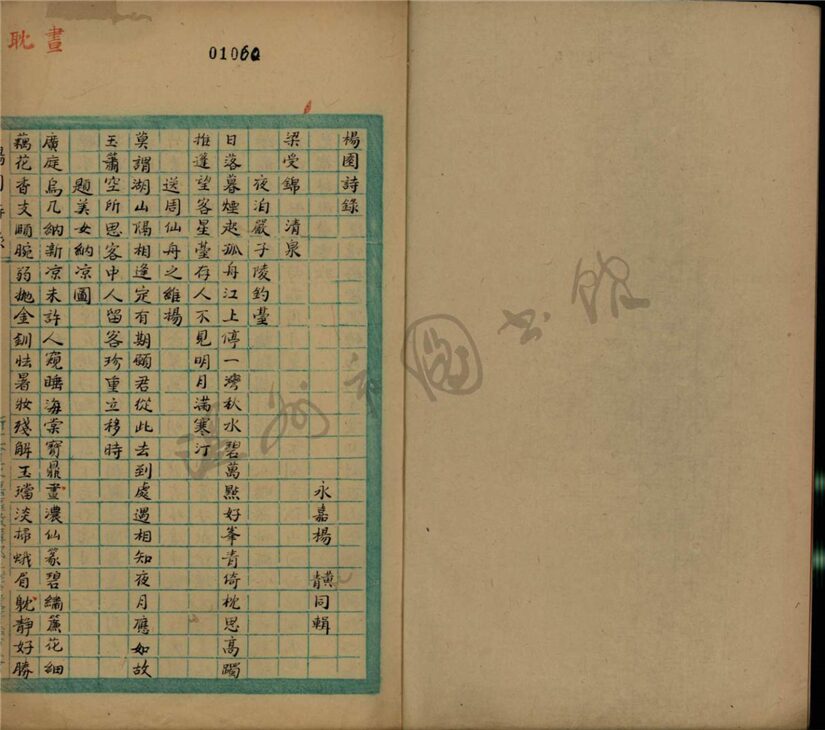 耽 晝
01060
楊園詩錄
永嘉楊 青 黄同輯
梁受錦 清泉
夜泊嚴子陵釣臺
日落暮煙起孤舟江上停一灣秋水碧萬點好峯青倚枕思高躅
推篷望客星臺存人不見明月滿寒汀
送周仙舟之維揚
莫謂湖山隔相逢定有期願君從此去到處遇相知夜月應如故
玉蕭空所思客中人留客珍重立移時
題美女納凉圖
廣庭烏几納新凉未許人窺睡海棠寶鼎畫濃仙篆碧繡簾花細
藕花香支頤腕弱拋金釧怯暑妝殘解玉璫淡掃蛾眉耽靜好勝
溫州市圖書館